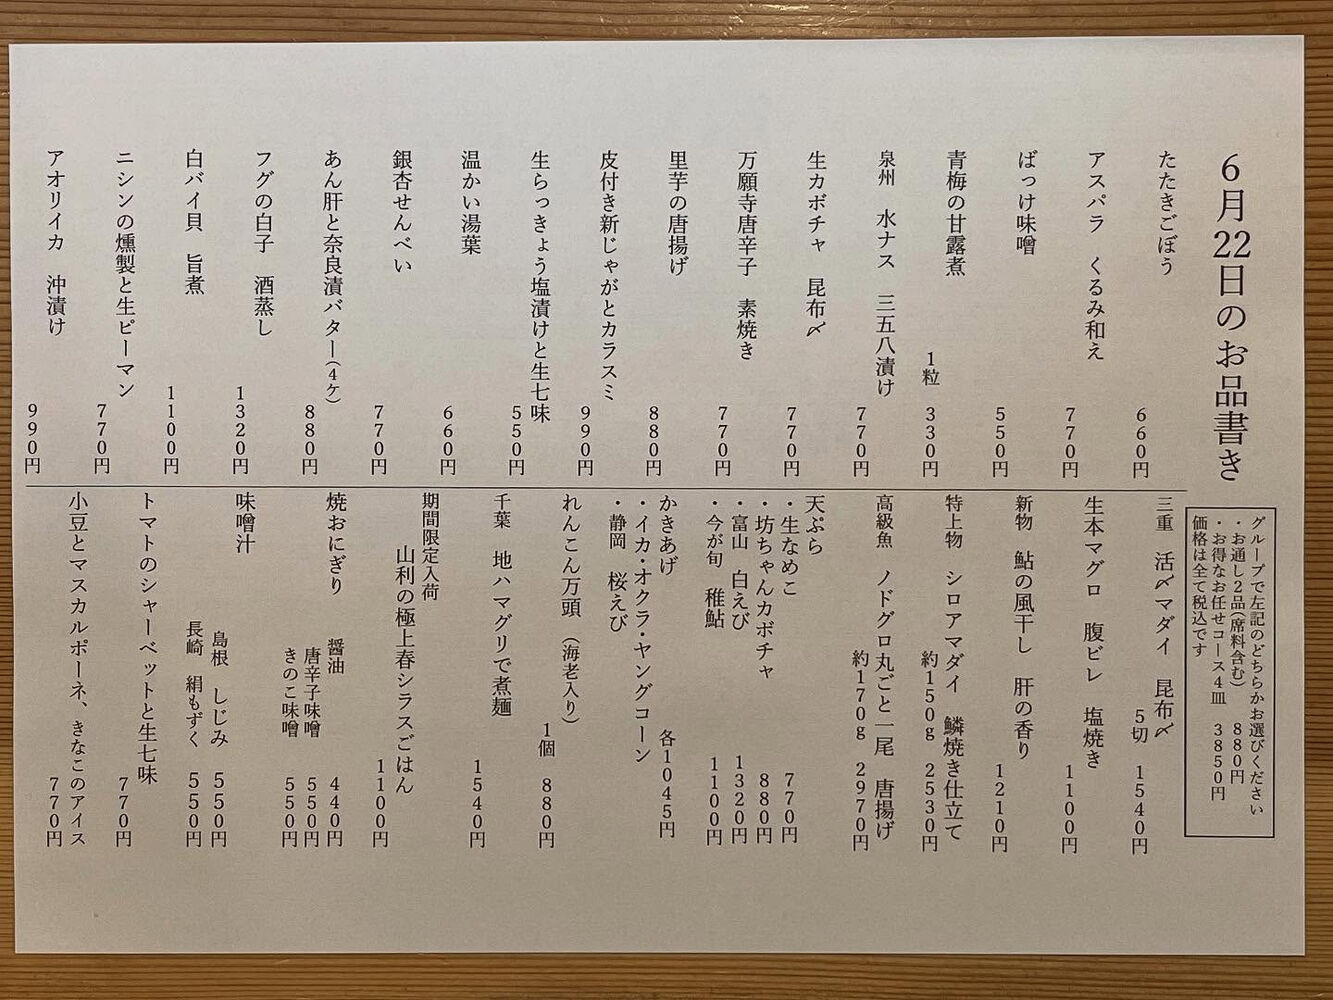 6月22日のお品書き
たたきごぼう
660円
アスパラ くるみ和え
770円
ばっけ味噌
550円
青梅の甘露煮
1粒 330円
泉州 水ナス 三五八漬け
770円
生カボチャ 昆布〆
770円
万願寺唐辛子 素焼き
770円
里芋の唐揚げ
880円
皮付き新じゃがとカラスミ
990円
生らっきょう塩漬けと生七味
550円
温かい湯葉
660円
銀杏せんべい
770円
あん肝と奈良漬バター(4ケ)
880円
フグの白子 酒蒸し
1320円
白バイ貝 旨煮
1100円
ニシンの燻製と生ピーマン
770円
アオリイカ 沖漬け
990円
グループで左記のどちらかお選びください
・お通し2品(席料含む) 880円
・お得なお任せコース4皿 3850円
価格は全て税込です
三重 活〆マダイ 昆布〆
5切 1540円
生本マグロ 腹ビレ 塩焼き
1100円
新物 鮎の風干し 肝の香り
1210円
特上物 シロアマダイ 鱗焼き仕立て
約150g 2530円
高級魚 ノドグロ丸ごと一尾 唐揚げ
約170g 2970円
天ぷら
・生なめこ 770円
・坊ちゃんカボチャ 880円
・富山 白えび 1320円
・今が旬 稚鮎 1100円
かきあげ 各1045円
・イカ・オクラ・ヤングコーン
・静岡 桜えび
れんこん万頭 (海老入り)
1個 880円
千葉 地ハマグリで煮麺
1540円
期間限定入荷
山利の極上春シラスごはん
1100円
焼おにぎり 醤油 440円
唐辛子味噌 550円
きのこ味噌 550円
味噌汁
島根 しじみ 550円
長崎 絹もずく 550円
トマトのシャーベットと生七味
770円
小豆とマスカルポーネ、きなこのアイス
770円